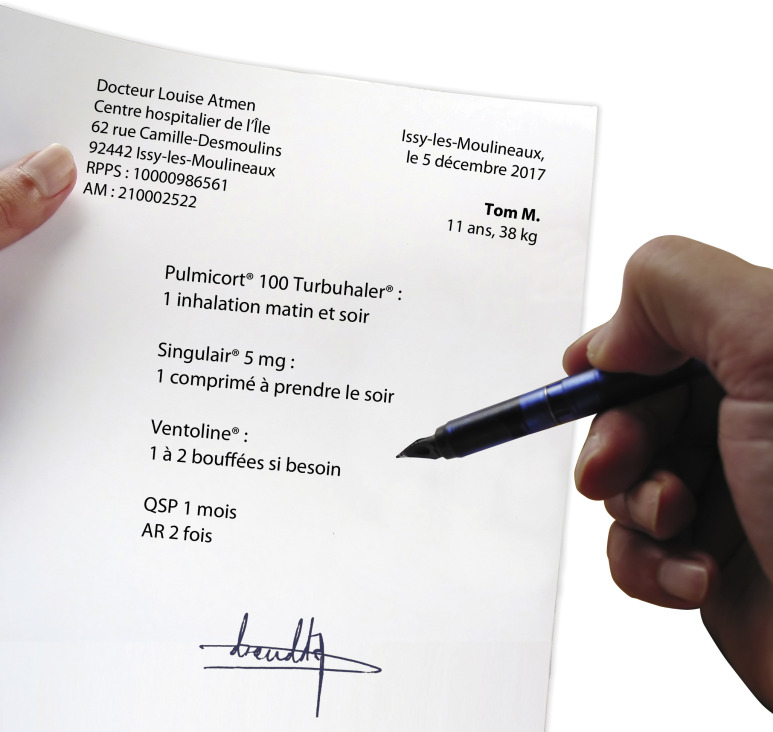 Docteur Louise Atmen
Centre hospitalier de l'Île
62 rue Camille-Desmoulins
92442 Issy-les-Moulineaux
RPPS : 10000986561
AM : 210002522
Issy-les-Moulineaux,
le 5 décembre 2017
Tom M.
11 ans, 38 kg
Pulmicort® 100 Turbuhaler® :
1 inhalation matin et soir
Singulair® 5 mg :
1 comprimé à prendre le soir
Ventoline® :
1 à 2 bouffées si besoin
QSP 1 mois
AR 2 fois